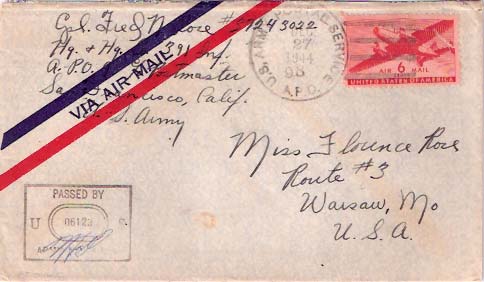 Fred #37243022
Hq. + Hq. 391 Inf.
A.P.O. Postmaster
San Francisco, Calif.
U.S. Army
VIA AIR MAIL
U.S. ARMY POSTAL SERVICE
27
1944
A.P.O.
AIR 6 MAIL
UNITED STATES OF AMERICA
Miss Florence Rose
Route #3
Warsaw, Mo
U.S.A.
PASSED BY
U
06123